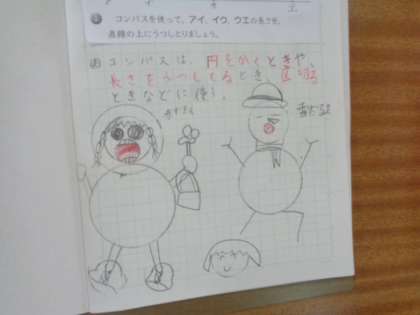 コンパスを使って、アイ、イウ、ウエの長さを、
直線の上にうつしとりましょう。
コンパスは、円をかくときや、
長さをうつしとるとき、区切る
ときなどに使う。